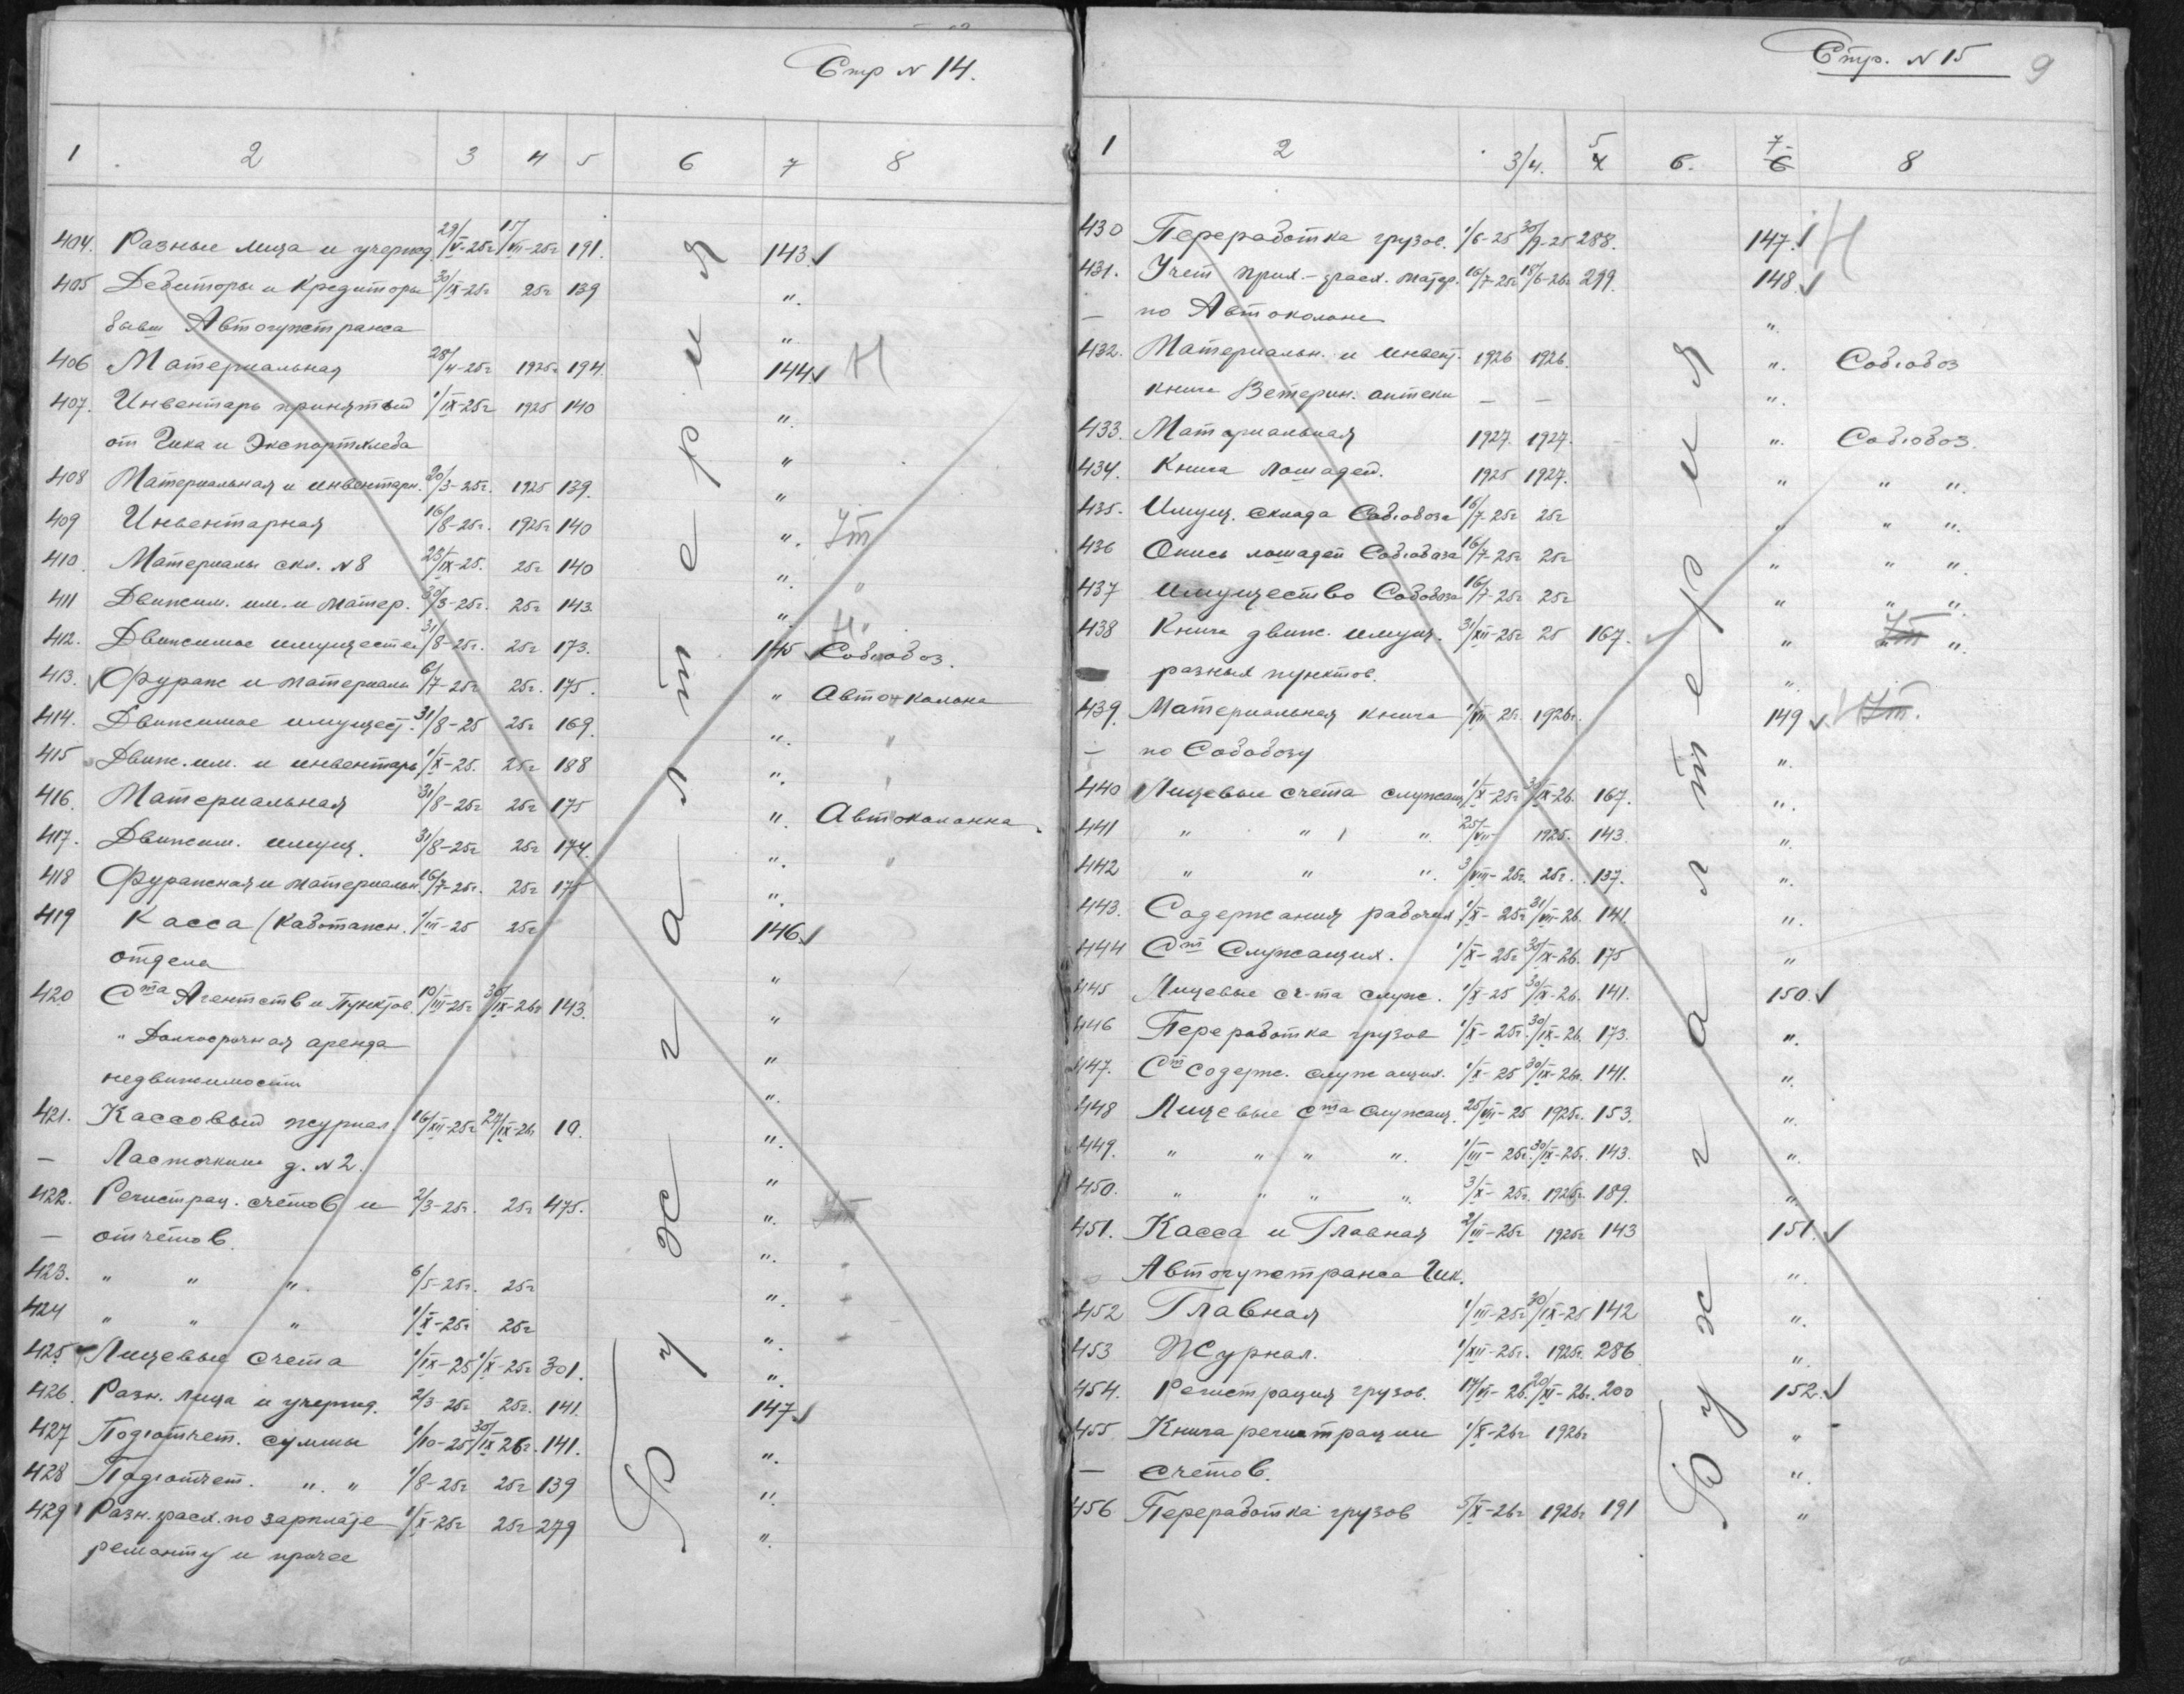 Стр № 14.
1 2 3 4 5 6 7 8
404. Разные лица и учережд 29/V-25г 15/VII-25г 191. 143.
405 Дебиторы и Кредиторы 30/IX-25г 25г 139 ".
бывш Автогужтранса ".
406 Материальная 28/4-25г 1925г 194. 144 Н
407. Инвентарь принятый 1/IX-25г 1925 140 ".
от Гика и Экспортхлеба "
408 Материальная и инвентарн. 20/3-25г. 1925 139. "
409 Инвентарная 16/8-25г. 1925г 140 ".
410. Материалы скл. №8 23/IX-25. 25г 140 ".
411 Движим. им. и матер. 30/3-25г. 25г 143. ".
412. Движимое имуществ 31/8-25г. 25г 173. 145
413. Фураж и материалы 6/7-25г 25г. 175. " Авто-колона
414. Движимое имущест. 31/8-25 25г 169. ". "
415 Движ. им. и инвентарь 1/X-25. 25г 188 ". "
416. Материальная 31/8-25г 25г 175 ". Автоколонна
417. Движим. имущ. 31/8-25г 25г 174. ". "
418 Фуражная и материальн. 16/7-25г. 25г 175 ".
419 Касса (Каботажн. 1/III-25 25г 146.
отдела "
420 Ста Агентств и Пунктов. 10/III-25г 30/IX-26г 143. "
" Долгосрочная аренда "
недвижимости ".
421. Кассовый журнал. 16/XII-25г 24/IX-26г 10. ".
— Ласточкин д. №2. "
422. Регистрац. счетов и 2/3-25г. 25г 475. ".
— отчетов. ".
423. " " ". 6/5-25г. 25г ".
424 " " " 1/X-25г 25г ".
425 Лицевые счета 1/IX-25 1/X-25г 301. ".
426. Разн. лица и учережд. 2/3-25г 25г. 141. 147
427 Подотчет. суммы 1/10-25 30/IX 26г. 141. ".
428 Подотчет. ". " 1/8-25г 25г 139 ".
429 Разн. расх. по зарплате 1/X-25г 25г 279 ".
ремонту и прочее
Бухгалтерия
Стр. № 15 9
1 2 3/4. 5 6. 7 6 8
430 Переработка грузов. 1/6-25 30/9-25 288. 147. Н
431. Учет прих.-расх. матер. 16/7-25г 18/6-26г 299. 148.
— по Автоколоне ".
432. Материальн. и инвент. 1926 1926. ".
книга Ветерин. аптеки — — ".
433. Материальная 1927. 1927. ".
434. Книга лошадей. 1925 1927. " " ".
435. Имущ. склада 16/7-25г 25г " " ".
436 Опись лошадей 16/7-25г 25г " " ".
437 Имущество 16/7-25г 25г " " ".
438 Книга движ. имущ. 31/XII-25г 25 167. " ".
разных пунктов. ".
439. Материальная книга 1/VIII 25. 1926г. 149
— по ".
440 Лицевые счета служащ. 1/X-25г 30/IX-26. 167. ".
441 " " " ". 25/VII- 1925. 143. ".
442 " " ". 3/VIII-25г. 25г. 137. ".
443. Содержания рабочих 1/X-25г 31/VII-26. 141. ".
444 Ст Служащих. 1/X-25г 30/IX-26. 175 "
445 Лицевые сч-та служ. 1/X-25 30/IX-26. 141. 150.
446 Переработка грузов 1/X-25г. 30/IX-26. 173. ".
447. Ст содерж. служащих. 1/X-25 30/IX-26г. 141. ".
448 Лицевые ста служащ. 25/VII-25 1925г. 153. ".
449. " " " ". 1/III-25г. 30/IX-25г. 143. ".
450. " " " ". 3/X-25г. 1925г. 189. "
451. Касса и Главная 2/III-25г 1925г 143 151.
Автогужтранса Гик. ".
452 Главная 1/III-25г 30/IX-25 142 ".
453 Журнал. 1/XII-25г. 1925г. 286 ".
454. Регистрация грузов. 17/VI-26. 20/XI-26г. 200 152.
455 Книга регистрации 1/X-26г 1926г "
— счетов. ".
456 Переработка грузов 5/X-26г 1926г 191 "
Бухгалтерия